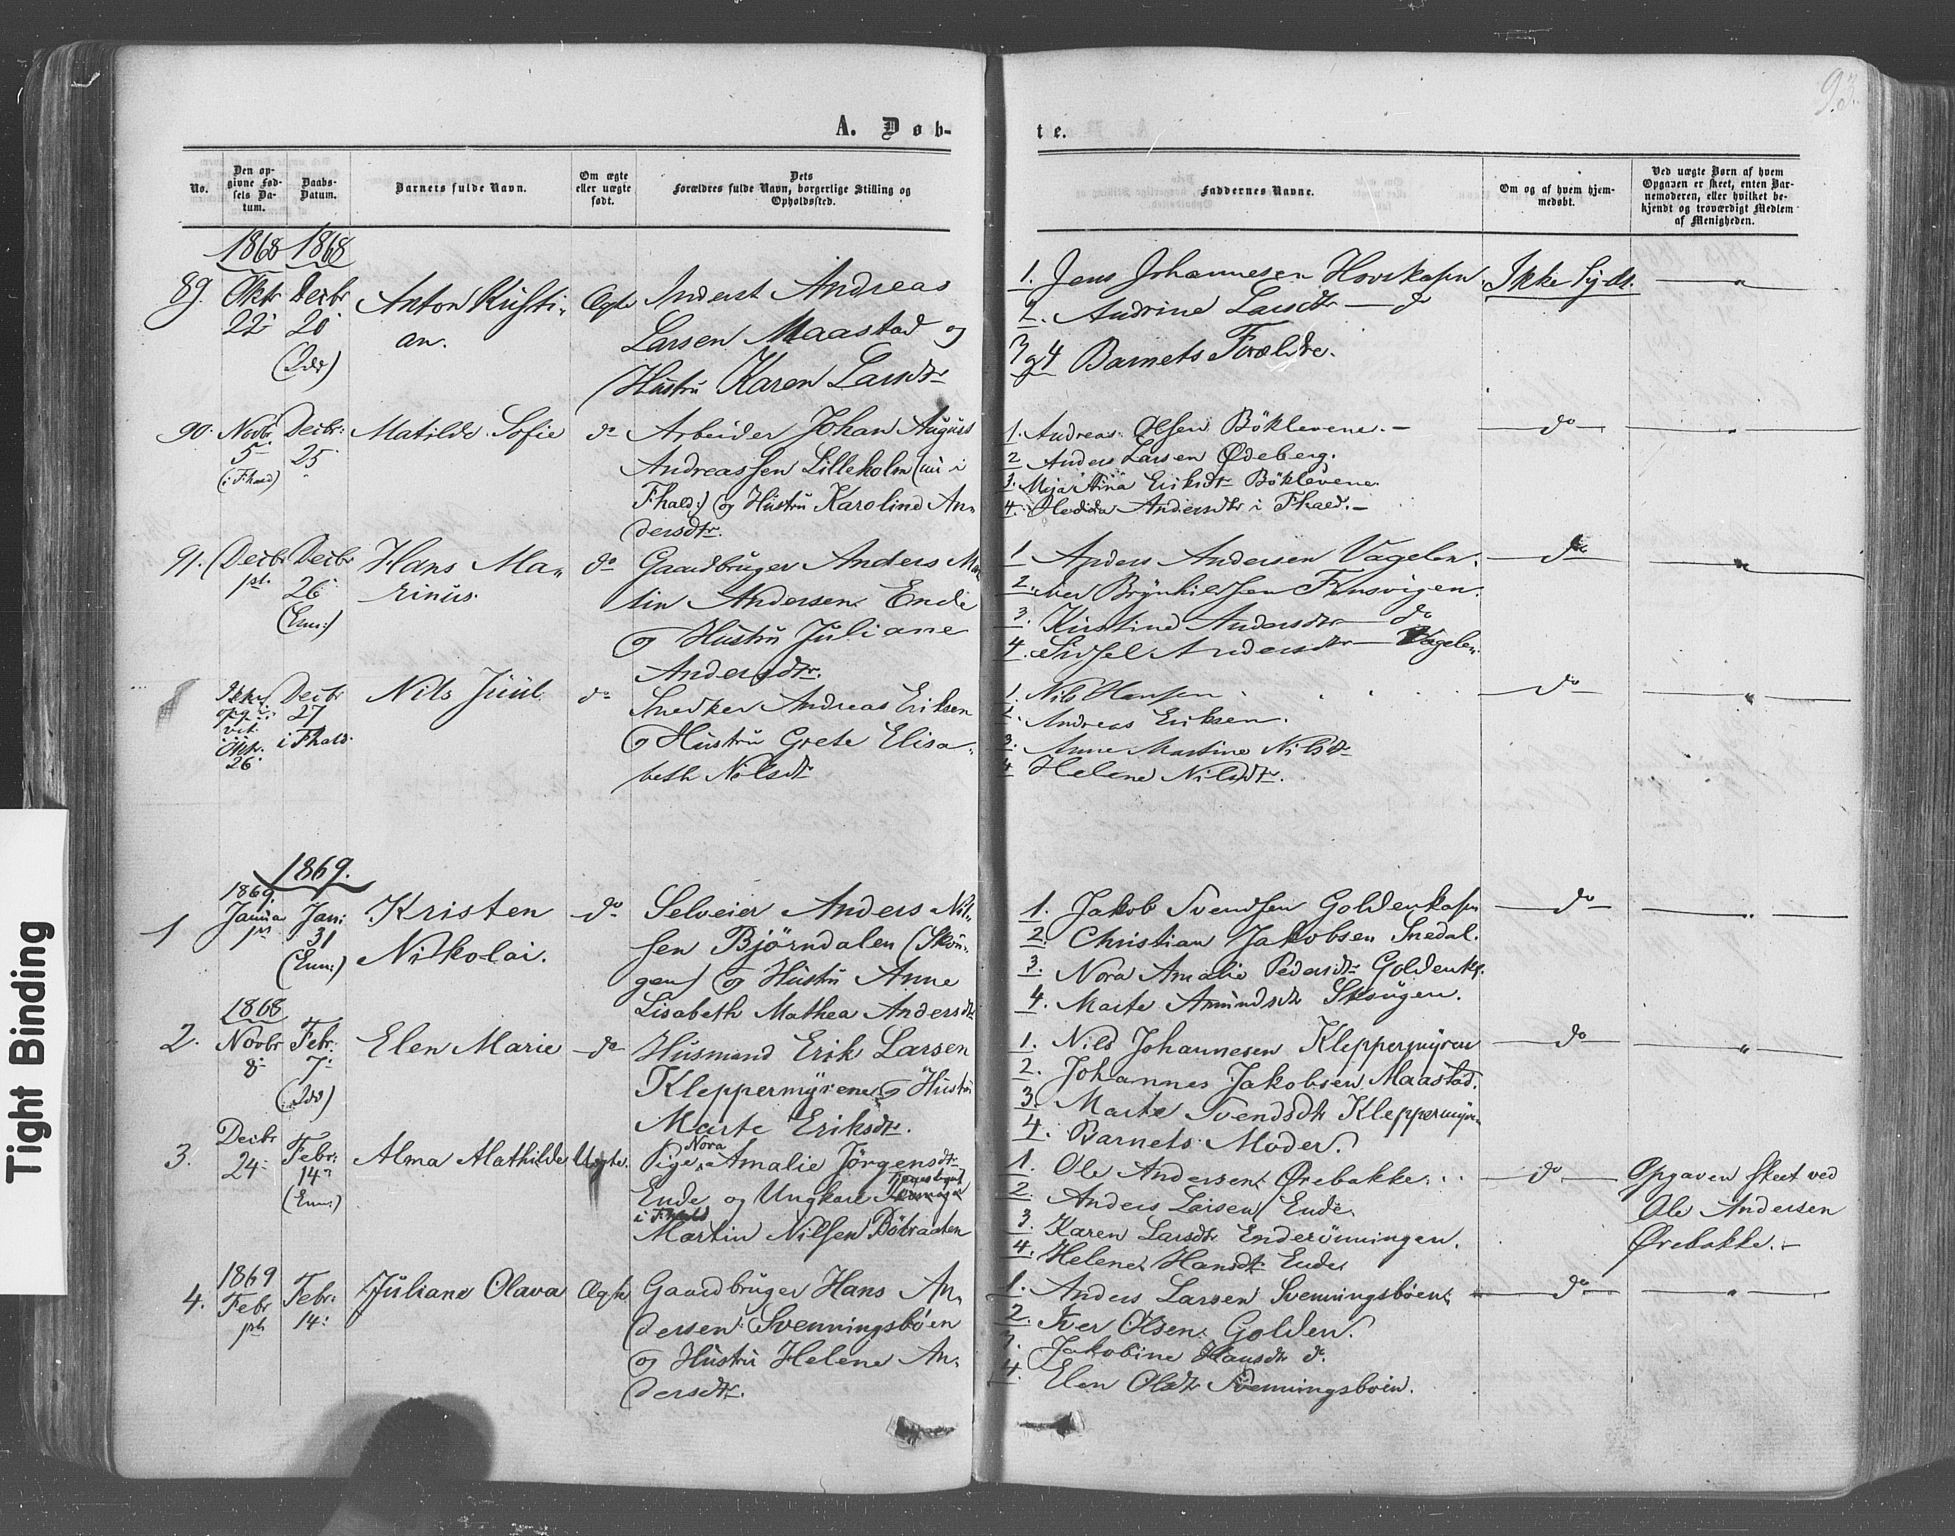 93.
A. Døb-
te.
No.
Den op-
givne Fød-
sels Da-
tum.
Daabs-
Datum.
Barnets fulde Navn.
Om ægte
eller uægte
født.
Dets
Forældres fulde Navn, borgerlige Stilling og
Opholdssted.
Faddernes Navne.
Om og af hvem hjem-
medøbt.
Ved uægte Børn af hvem
Opgaven er skeet, enten Bar-
nemoderen, eller hvilket be-
kjendt og troværdigt Medlem
af Menigheden.
1868 1868
89.
Oktbr
22
Decbr
20
(Idd)
Anton Kristi-
an.
Ægte
Inderst Andreas
Larsen Maastad og
Hustru Karen Larsdtr
1. Jens Johannesen Hovskasn
2. Andrine Larsdtr — do
3 og 4 Barnets Forældre.
Ikke hjdt.
90.
Novbr
5
(i Fhald)
Decbr:
25
Matilde Sofie
do
Arbeider Johan August
Andreassen Lilleholm (nu i
Fhald:) og Hustru Karoline An-
dersdtr.
1. Andreas Olsen Böklevene. —
2 Anders Larsen Ødeberg.
3. Maja Stina Eriksdtr Böklevene
4. Hedda Andersdtr i Fhald. —
do
91.
Decbr
1ste
Decbr
26
(Enn:)
Hans Ma-
rinus.
do
Gaardbruger Anders Mar
tin Andersen Ende
og Hustru Juliane
Andersdtr.
1 Anders Andersen Vagelen.
2. Iver Brynhilsen
3. Kirstine Andersdtr — do
4. Sidsel Andersdtr — Vagelen
do
Ikke
opg i
Oktr.
26
Decbr
27
i Fhald.
Nils Juul
do
Snedker Andreas Eriksen
og Hustru Grete Elisa-
beth Nilsdtr
1. Nils Hansen
2. Andreas Eriksen.
3. Anne Martine Nilsdtr
4 Helene Nilsdtr.
do
1869.
1
1869
Januar
1ste
Jan:
31
(Enn:)
Kristen
Nikolai.
do
Selveier Anders Nil-
sen Bjørndalen (Skou-
gen) og Hustru Anne
Lisabeth Mathea Andersdtr
1. Jakob Svendsen Goldenkasn
2. Christian Jakobsen Snedal.
3. Nora Amalie Pedersdtr Goldenks.
4. Marte Amundsdtr Skougen.
do
2.
1868
Novbr
8
Febr.
7
(Idd)
Elen Marie
do
Husmand Erik Larsen
Kleppermyrene og Hustru
Marte Eriksdtr.
1. Nils Johannesen Kleppermyren
2. Johannes Jakobsen Maastad.
3. Marte Svendsdtr Kleppermyren
4. Barnets Moder.
do
3.
Decbr
24
Febr:
14
(Enn:)
Alma Mathilde
Uægte.
Pige Nora Amalie Jörgensdtr
Ende og Ungkarl
i Fhald
Martin Nilsen Böbraaten
1. Ole Andersen Ørebakke.
2. Anders Larsen Ende.
3. Karen Larsdtr Enderönningen.
4. Helene Hansdtr Ende
do
Opgaven skeet ved
Ole Andersen
Ørebakke. —
4.
1869
Febr
1ste
Febr:
14:
Juliane Olava
Ægte
Gaardbruger Hans An-
dersen Svenningsböen
og Hustru Helene An-
dersdtr.
1. Anders Larsen Svenningsböen
2. Iver Olsen Golden.
3. Jakobine Hansdtr do.
4. Elen Olsdtr Svenningsböen.
do
Tight Binding